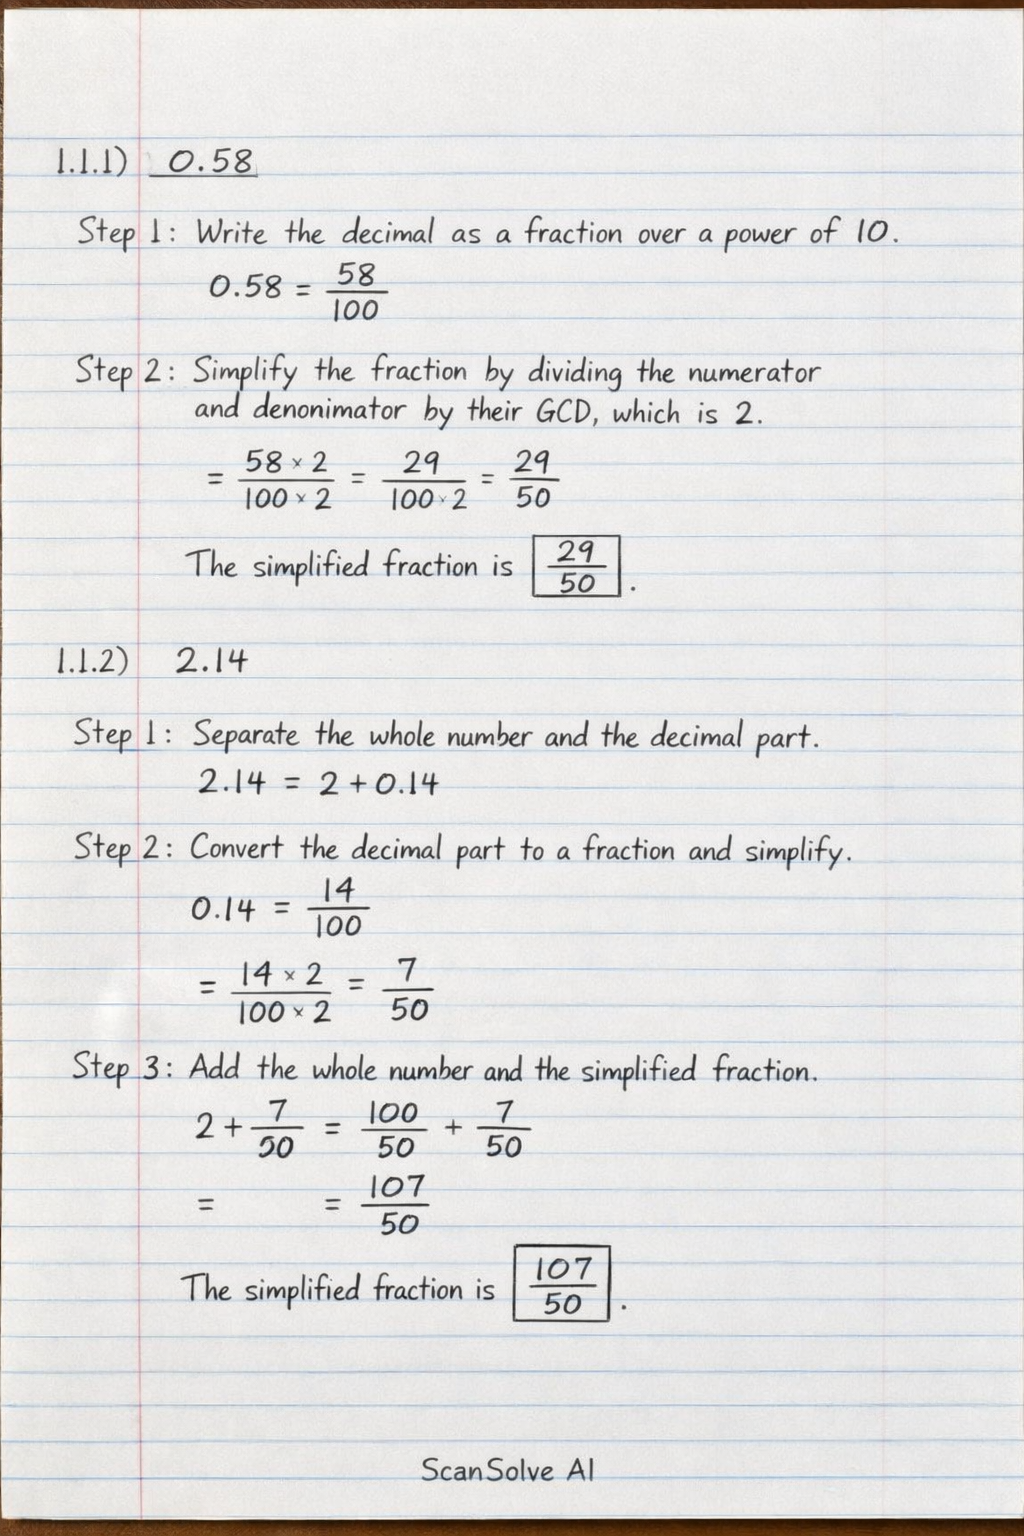 1.1.1) 0.58
Step 1: Write the decimal as a fraction over a power of 10.
0.58 = 58/100
Step 2: Simplify the fraction by dividing the numerator
and denonimator by their GCD, which is 2.
= 58 × 2/100 × 2 = 29/100 · 2 = 29/50
The simplified fraction is 29/50.
1.1.2) 2.14
Step 1: Separate the whole number and the decimal part.
2.14 = 2 + 0.14
Step 2: Convert the decimal part to a fraction and simplify.
0.14 = 14/100
= 14 × 2/100 × 2 = 7/50
Step 3: Add the whole number and the simplified fraction.
2 + 7/50 = 100/50 + 7/50
= = 107/50
The simplified fraction is 107/50.
ScanSolve AI